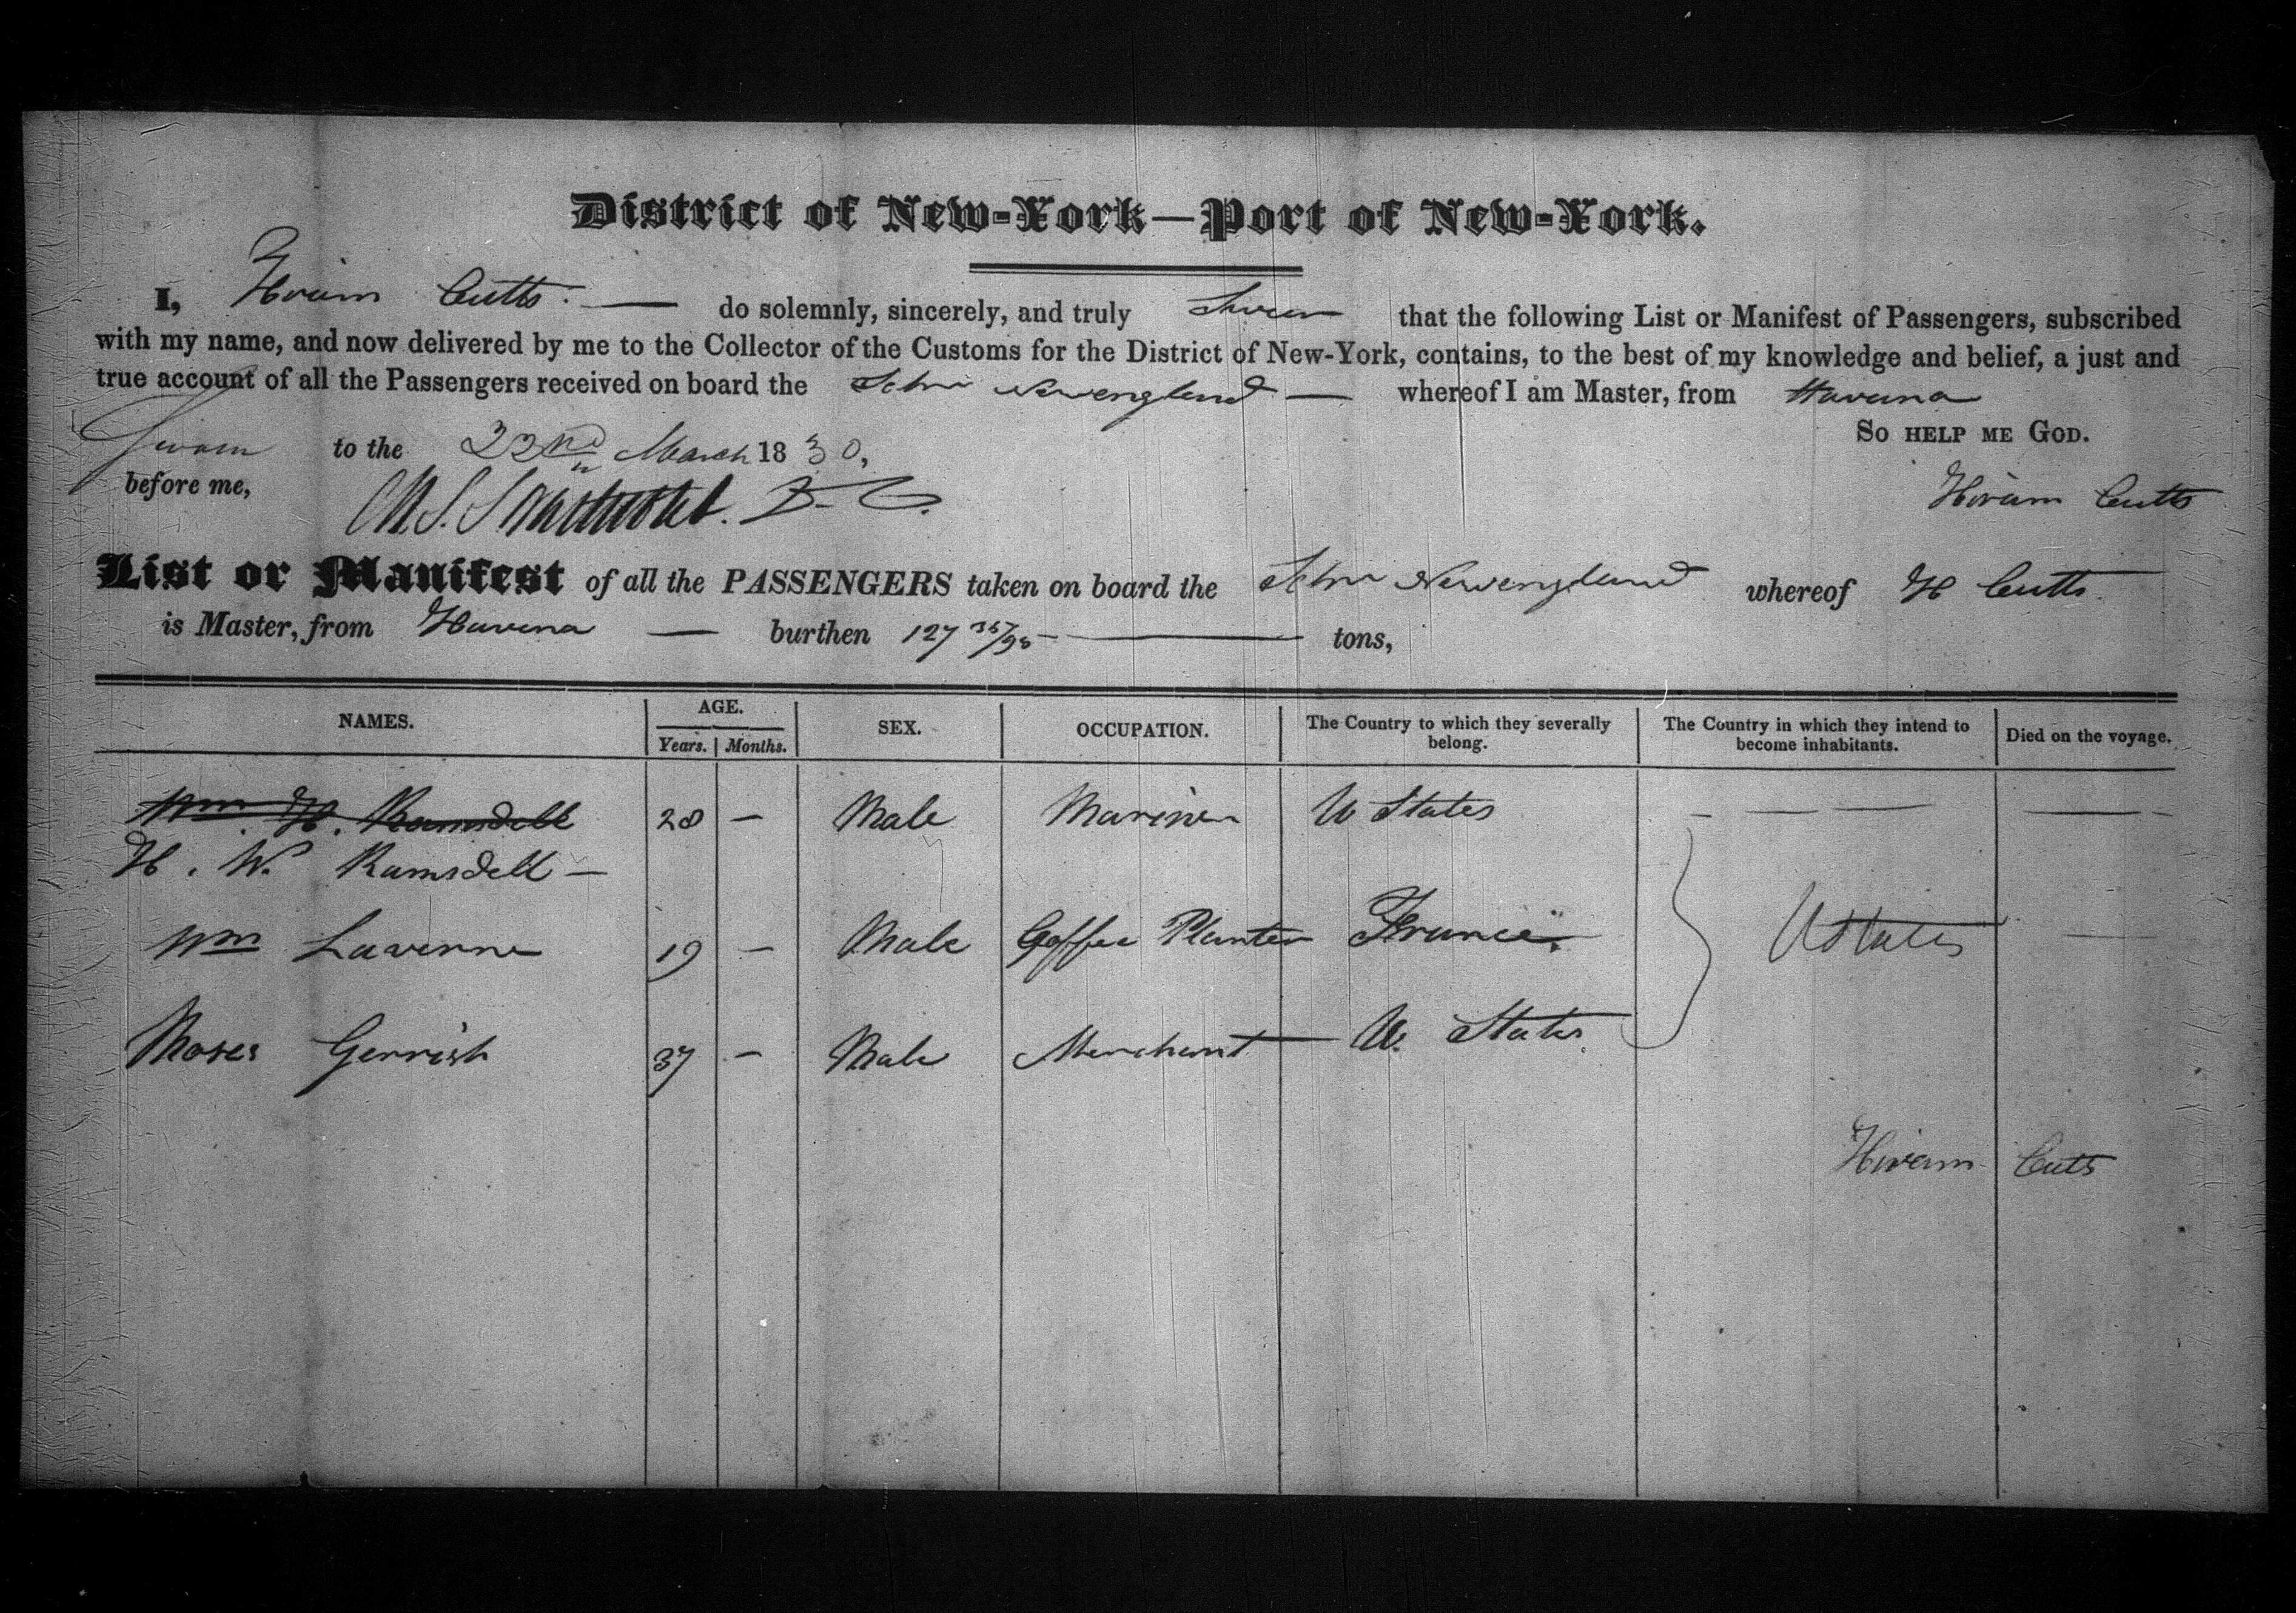 District of New-York—Port of New-York.
I, Hiram Cutts. — do solemnly, sincerely, and truly Swear that the following List or Manifest of Passengers, subscribed
with my name, and now delivered by me to the Collector of the Customs for the District of New-York, contains, to the best of my knowledge and belief, a just and
true account of all the Passengers received on board the Schr Newengland — whereof I am Master, from Havana
So help me God.
Sworn to the 22nd March 1830,
before me,
Hiram Cutts
List or Manifest of all the PASSENGERS taken on board the Schr Newengland whereof H Cutts
is Master, from Havana — burthen 127 35/95 — tons,
NAMES. AGE. Years. Months. SEX. OCCUPATION. The Country to which they severally belong. The Country in which they intend to become inhabitants. Died on the voyage.
Wm. H. Ramsdell 28 — Male Mariner U States — — — —
H. W. Ramsdell —
Wm Lavenne 19 — Male Coffee Planter France. UStates —
Moses Gerrish 37 — Male Merchant — U. States
Hiram Cutts